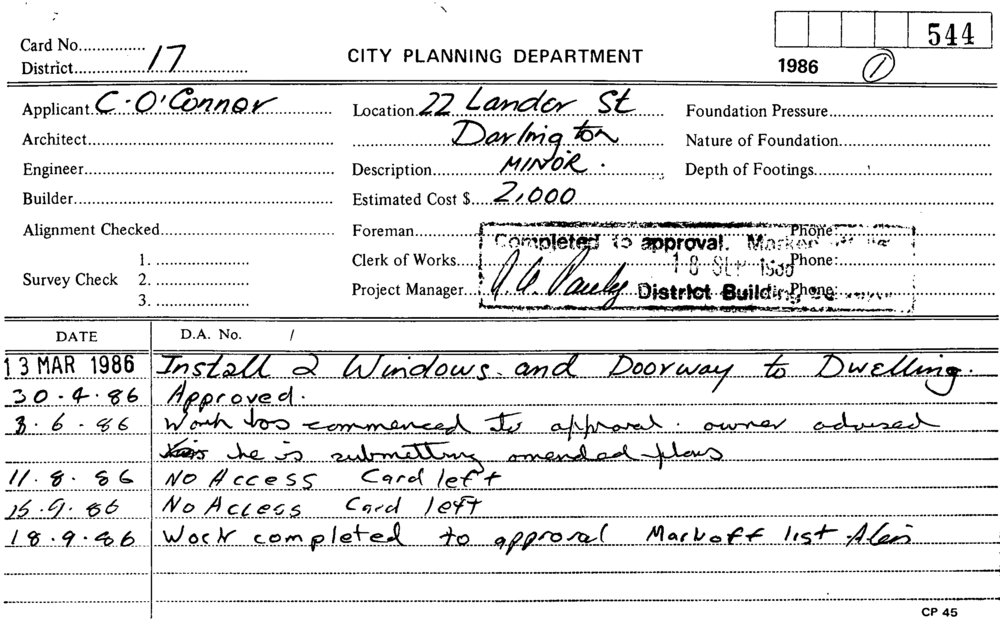 Card No............... 544
District 17 CITY PLANNING DEPARTMENT 1986 1
Applicant C. O'Connor Location 22 Lander St Foundation Pressure
Architect Darlington Nature of Foundation
Engineer Description MINOR. Depth of Footings
Builder Estimated Cost $ 2,000
Alignment Checked Foreman Phone:
Completed to approval.
Survey Check 1. Clerk of Works Phone:
2. 18 SEP 1986
3. Project Manager Phone:
District Building
DATE D.A. No. /
13 MAR 1986 Install 2 Windows and Doorway to Dwelling.
30.4.86 Approved.
3.6.86 Work has commenced to approval. owner advised
he is submitting amended plans
11.8.86 No Access Card left
15.9.86 No Access Card left
18.9.86 Work completed to approval Markoff list
CP 45